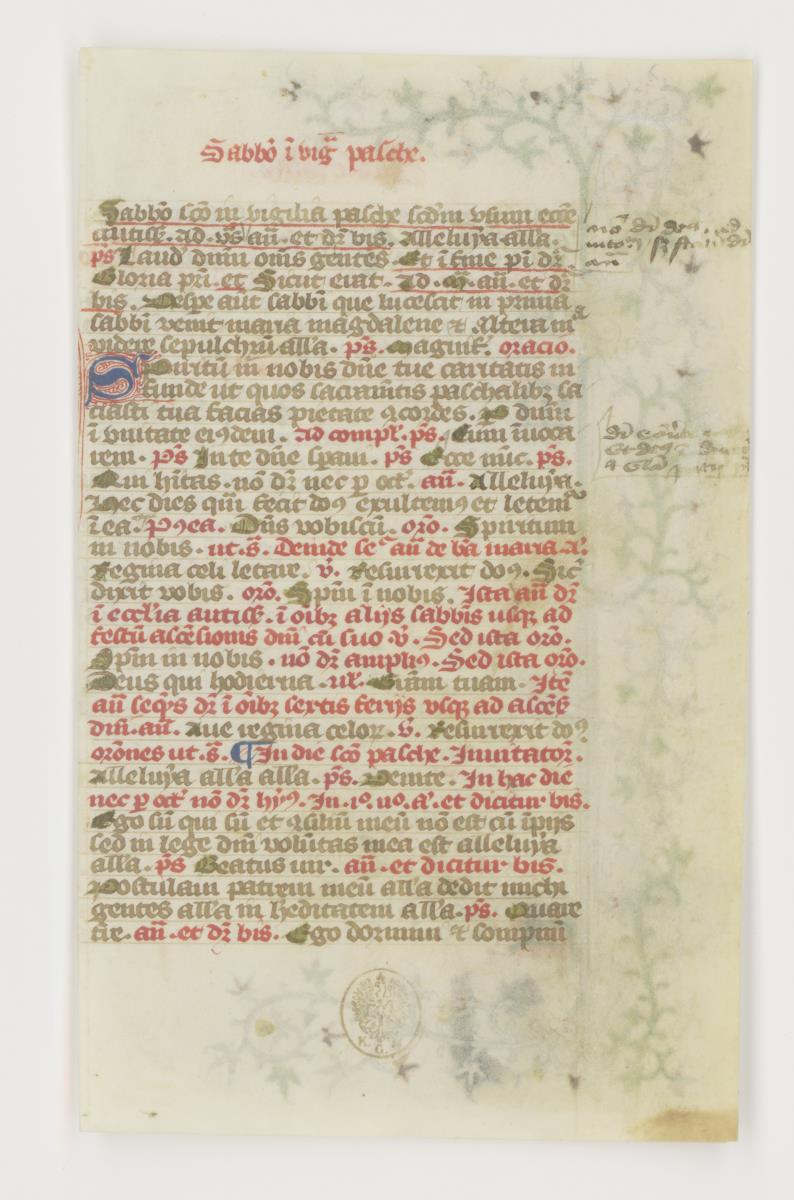 Sabbo᷒ ī vig̃ pasche.
Sabbo᷒ sc̄o in vigilia pasche scd̄m vsum ecc̄e
autisẜ. Ad. vs̄. an̄. et dr̄ bis. Alleluya all'a.
ps Laud' dn̄m om̄s gentes. Et ī fine ps̄ dr̄
Gloria pr̄i et Sicut erat. Ad. M̄. an̄. et dr̄
bis. Vesp̄e aut̄ sabb̄i que lucescit in prima
sabb̄i venit maria magdalene et Altera ma
videre sepulchrū all'a. ps̄. Magnif̄. oracio.
Spiritū in nobis dn̄e tue caritatis in
funde ut quos sacramt̄is paschalibꝫ sa
ciasti tua facias pietate ꝯcordes. P dn̄m
ī vnitate eiꝰdem. Ad compl'. ps̄. Cum īuoca
rem. ps̄ In te dn̄e spaui. ps̄ Ecce nūc. ps̄.
Qui hītas. nō dr̄ nec ꝑ oct̄. an̄. Alleluya.
Hec dies quā fecit dn̄s exultemꝰ et letem̄
ī ea. Pꝰea. Dn̄s vobiscū. oro᷒. Spiritum
in nobis. ut. s̄. Deinde se^c an̄ de bt̄a maria. a'.
Regina celi letare. v̄. Resurrexit dn̄s. Sic̄
dixit vobis. oro᷒. Spm̄ ī nobis. Ista an̄ dr̄
ī ecc̄lia autisẜ. ī oībꝫ alijs sabb̄is usqꝫ ad
festū ascēsionis dn̄i cū suo v̄. Sed ista oro᷒.
Spm̄ in nobis. nō dr̄ ampliꝰ. Sed ista oro᷒.
Deus qui hodierna. ul'. Gr̄am tuam. Itē
an̄ seqn̄s dr̄ ī oībꝫ sextis ferijs vsqꝫ ad ascēẜ
dn̄i. an̄. Aue regina celoꝝ. v̄. Resurrexit dn̄s
oro᷒nes ut. s̄. ¶ In die sc̄o pasche. Inuitatoꝝ.
Alleluya all'a all'a. ps̄. Venite. In hac die
nec ꝑ oct̄ nō dr̄ hyꝰ. In. 1º. nº. a'. et dicitur bis.
Ego sū qui sū et ꝯsiliū meū nō est cū īpijs
sed in lege dn̄i volūtas mea est alleluya
all'a. ps̄ Beatus vir. an̄. et dicitur bis.
Postulaui patrem meū all'a dedit michi
gentes all'a in h̄editatem all'a. ps̄. Quare
fre. an̄. et dr̄ bis. Ego dormiui et sompnū